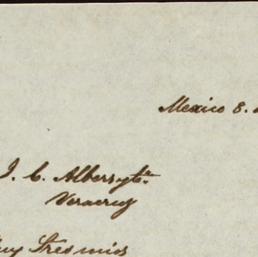 Mexico 8.
J. C. Albers yte.
Veracruz
Muy Sres mios